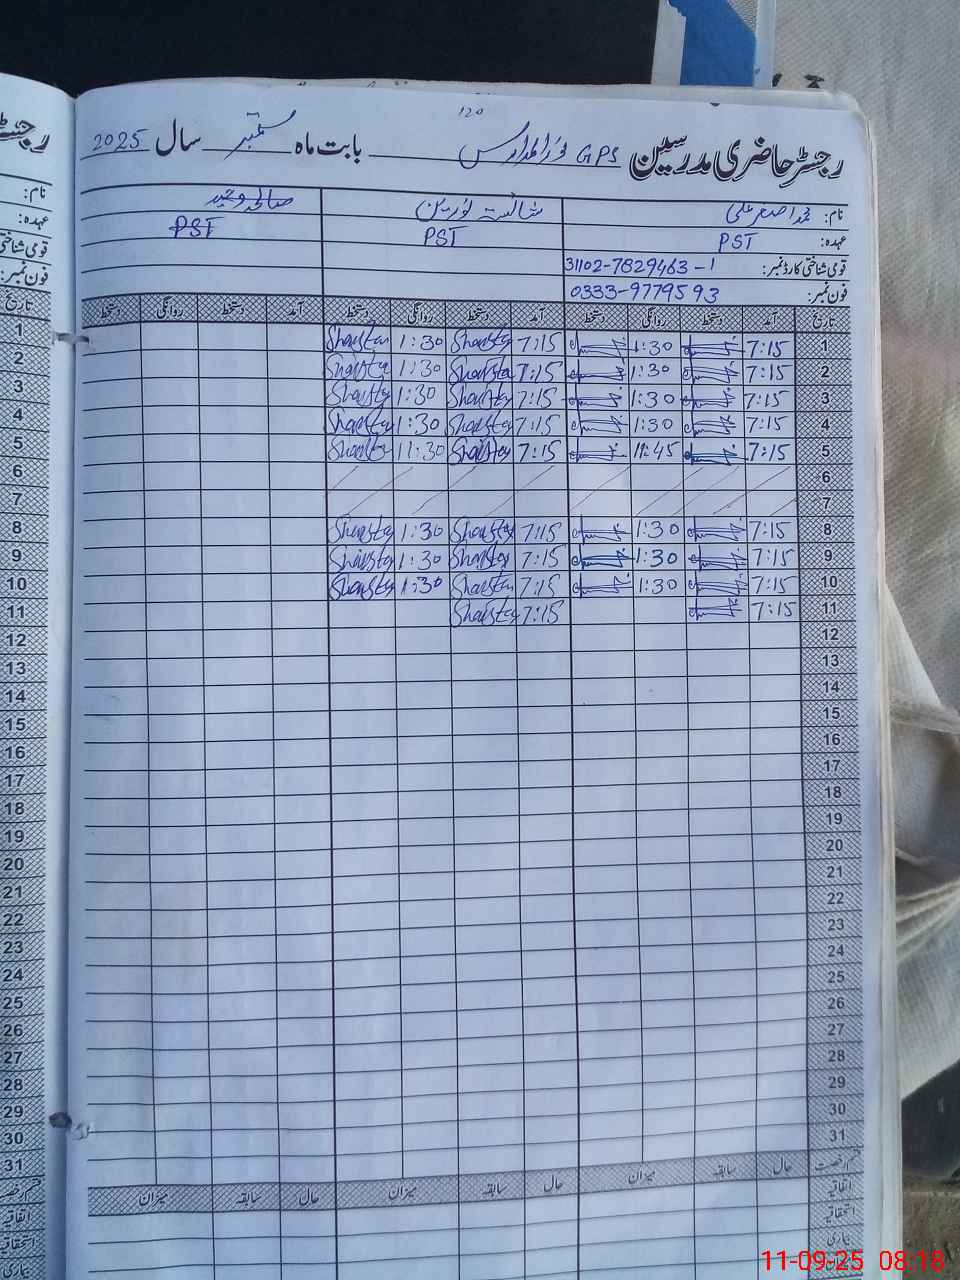 120
رجسٹر حاضری مدرسین GPS فخرالمدارس بابت ماہ ستمبر سال 2025
نام: محمد اصغر علی شائستہ نورین صالحہ وحید
عہدہ: PST PST PST
قومی شناختی کارڈ نمبر: 31102-7829463-1
فون نمبر: 0333-9779593
تاریخ آمد دستخط روانگی دستخط آمد دستخط روانگی دستخط آمد دستخط روانگی دستخط
1 7:15 1:30 7:15 Shaista 1:30 Shaista
2 7:15 1:30 7:15 Shaista 1:30 Shaista
3 7:15 1:30 7:15 Shaista 1:30 Shaista
4 7:15 1:30 7:15 Shaista 1:30 Shaista
5 7:15 11:45 7:15 Shaista 11:30 Shaista
6
7
8 7:15 1:30 7:15 Shaista 1:30 Shaista
9 7:15 1:30 7:15 Shaista 1:30 Shaista
10 7:15 1:30 7:15 Shaista 1:30 Shaista
11 7:15 7:15 Shaista
12
13
14
15
16
17
18
19
20
21
22
23
24
25
26
27
28
29
30
31
قسم رخصت حال سابقہ میزان حال سابقہ میزان حال سابقہ میزان
اتفاقیہ
استحقاقیہ
بیماری
رجسٹر
نام:
عہدہ:
قومی شناختی
فون نمبر:
تاریخ
1
2
3
4
5
6
7
8
9
10
11
12
13
14
15
16
17
18
19
20
21
22
23
24
25
26
27
28
29
30
31
قسم رخصت
اتفاقیہ
استحقاقیہ
بیماری
11-09-25 08:18